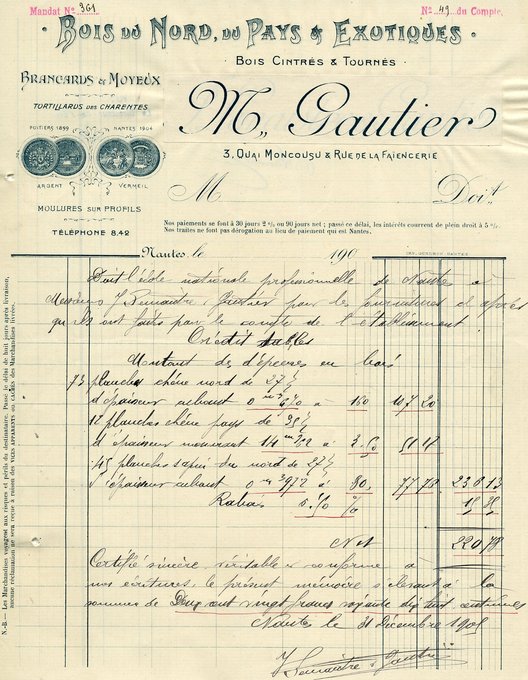 Mandat N° 361
N° 49 du Compte
BOIS DU NORD, DU PAYS & EXOTIQUES
BOIS CINTRÉS & TOURNÉS
BRANCARDS & MOYEUX
TORTILLARDS DES CHARENTES
POITIERS 1899 NANTES 1904
ARGENT VERMEIL
MOULURES SUR PROFILS
TÉLÉPHONE 8.42
M. Gautier
3, QUAI MONCOUSU & RUE DE LA FAIENCERIE
M Doit
Nos paiements se font à 30 jours 2 % ou 90 jours net ; passé ce délai, les intérêts courrent de plein droit à 5 %.
Nos traites ne font pas dérogation au lieu de paiement qui est Nantes.
Nantes le 190
Doit l'école nationale professionnelle de Nantes à
Messieurs J. Lemaistre, Gautier pour les fournitures ci après
qu'ils ont faits pour le compte de l'établissement
Crédit tables
Montant des dépenses en bois
73 planches chêne nord de 27
d'épaisseur cubant à 160 107 20
12 planches chêne pays de 35
d'épaisseur mesurant à 3.50
45 planches sapin du nord de 27
d'épaisseur cubant 0 972 à 80 77.78
Rabais %
Net 220 78
Certifié sincère véritable et conforme à
nos écritures, le présent mémoire s'élevant à la
somme de Deux cent vingt francs soixante dix huit centimes
Nantes le 31 Décembre 1905
J Lemaistre & Gautier
N.-B. — Les Marchandises voyagent aux risques et périls du destinataire. Passé le délai de huit jours après livraison,
aucune réclamation ne sera reçue à raison des VICES APPARENTS OU CACHÉS des Marchandises livrées.